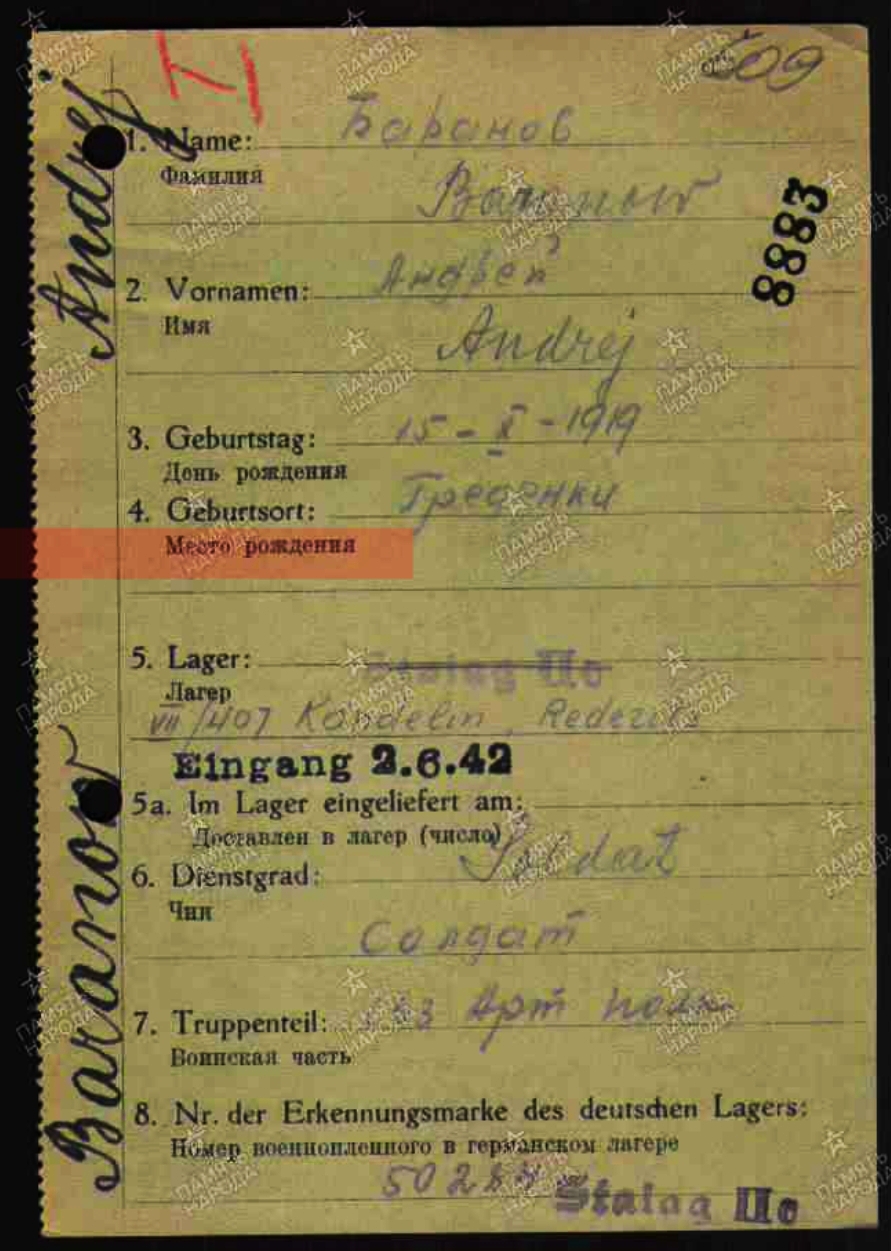 509
Andrej
1. Name: Баранов
Фамилия
Baranow
8883
2. Vornamen: Андрей
Имя
Andrej
3. Geburtstag: 15-X-1919
День рождения
4. Geburtsort:
Место рождения
5. Lager: Stalag IIc
Лагер
VII/407 Kandelin,
Eingang 2.6.42
5a. Im Lager eingeliefert am:
Доставлен в лагер (число)
6. Dienstgrad: Soldat
Чин
Солдат
7. Truppenteil: Арт полк
Воинская часть
8. Nr. der Erkennungsmarke des deutschen Lagers:
Номер военнопленного в германском лагере
Stalag IIc
Baranow
ПАМЯТЬ НАРОДА